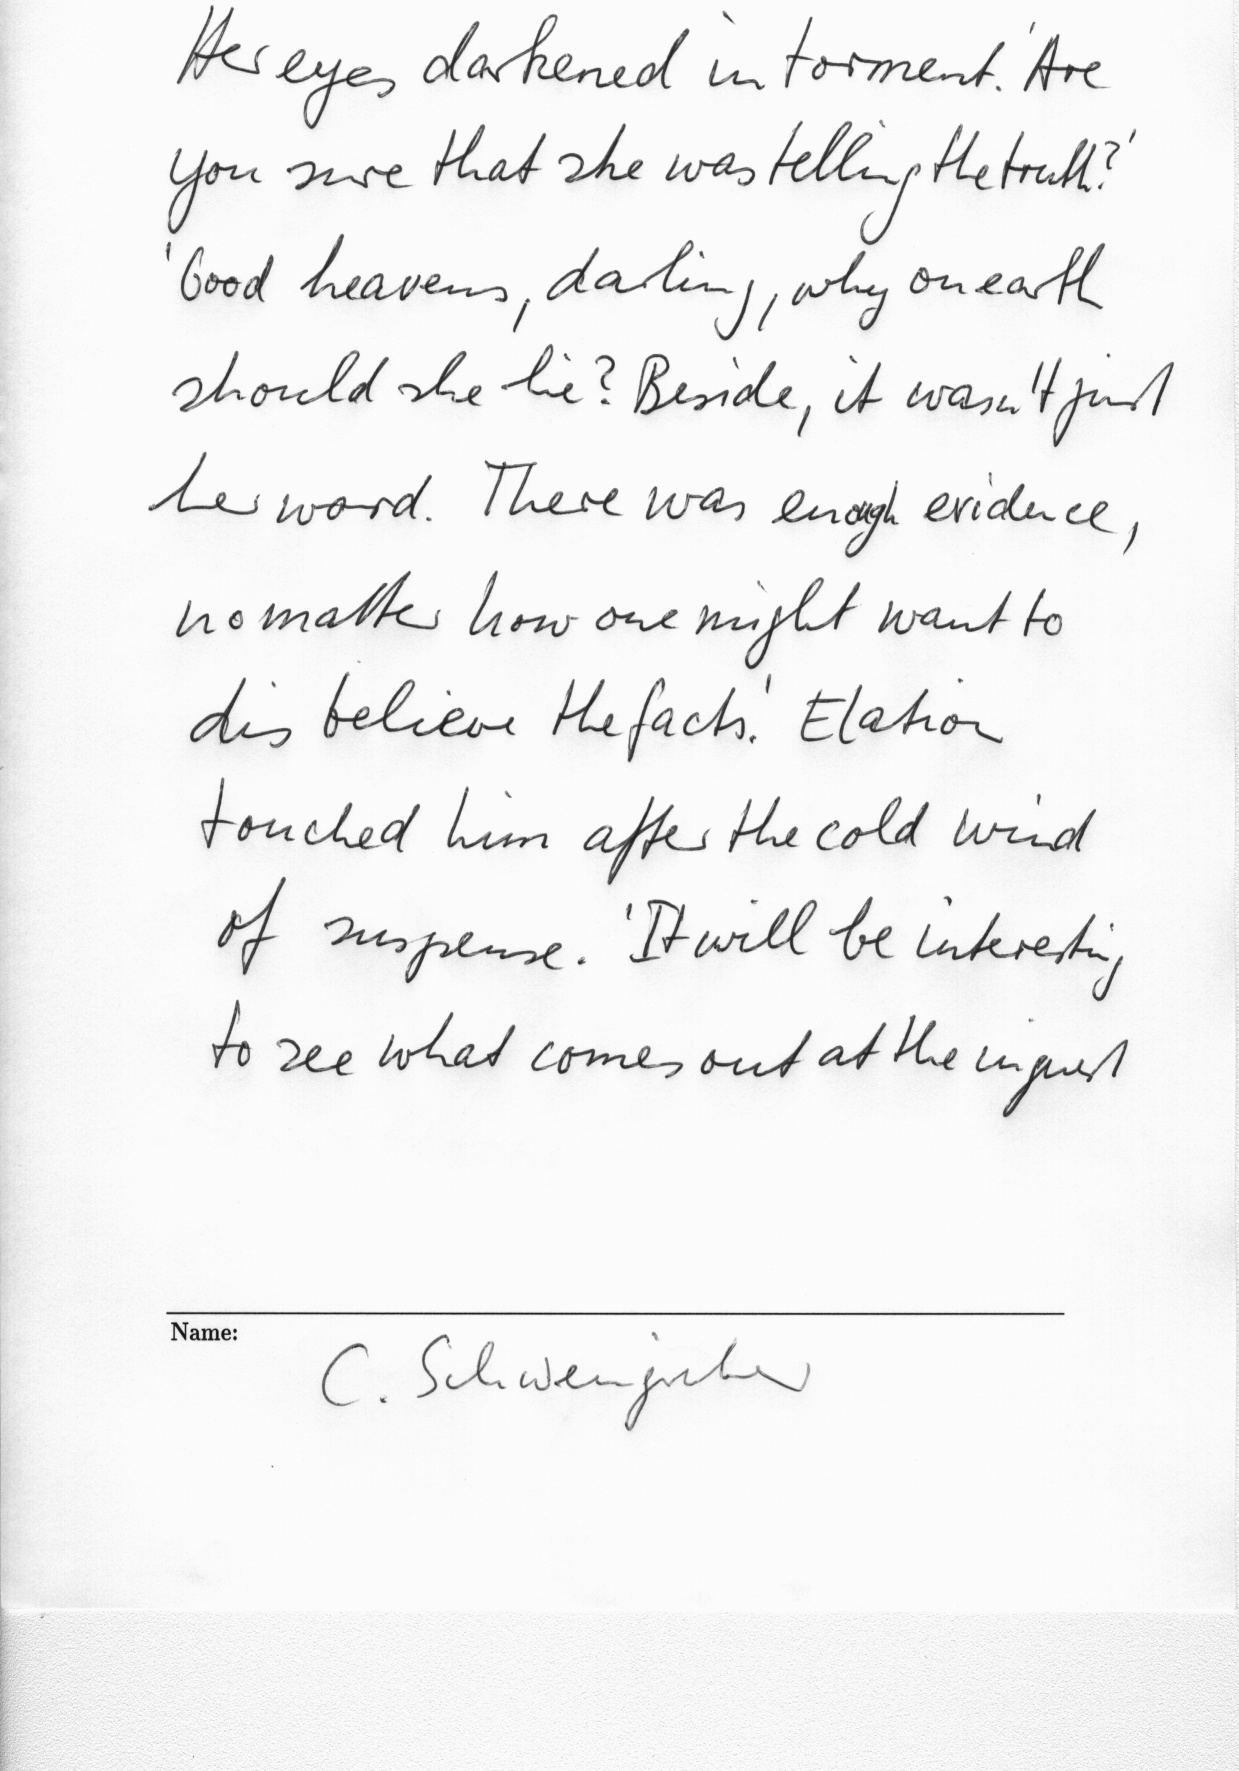 Her eyes darkened in torment. 'Are
you sure that she was telling the truth?'
'Good heavens, darling, why on earth
should she lie? Beside, it wasn't just
her word. There was enough evidence,
no matter how one might want to
disbelieve the facts.' Elation
touched him after the cold wind
of suspense. 'It will be interesting
to see what comes out at the inquest
Name:
C.